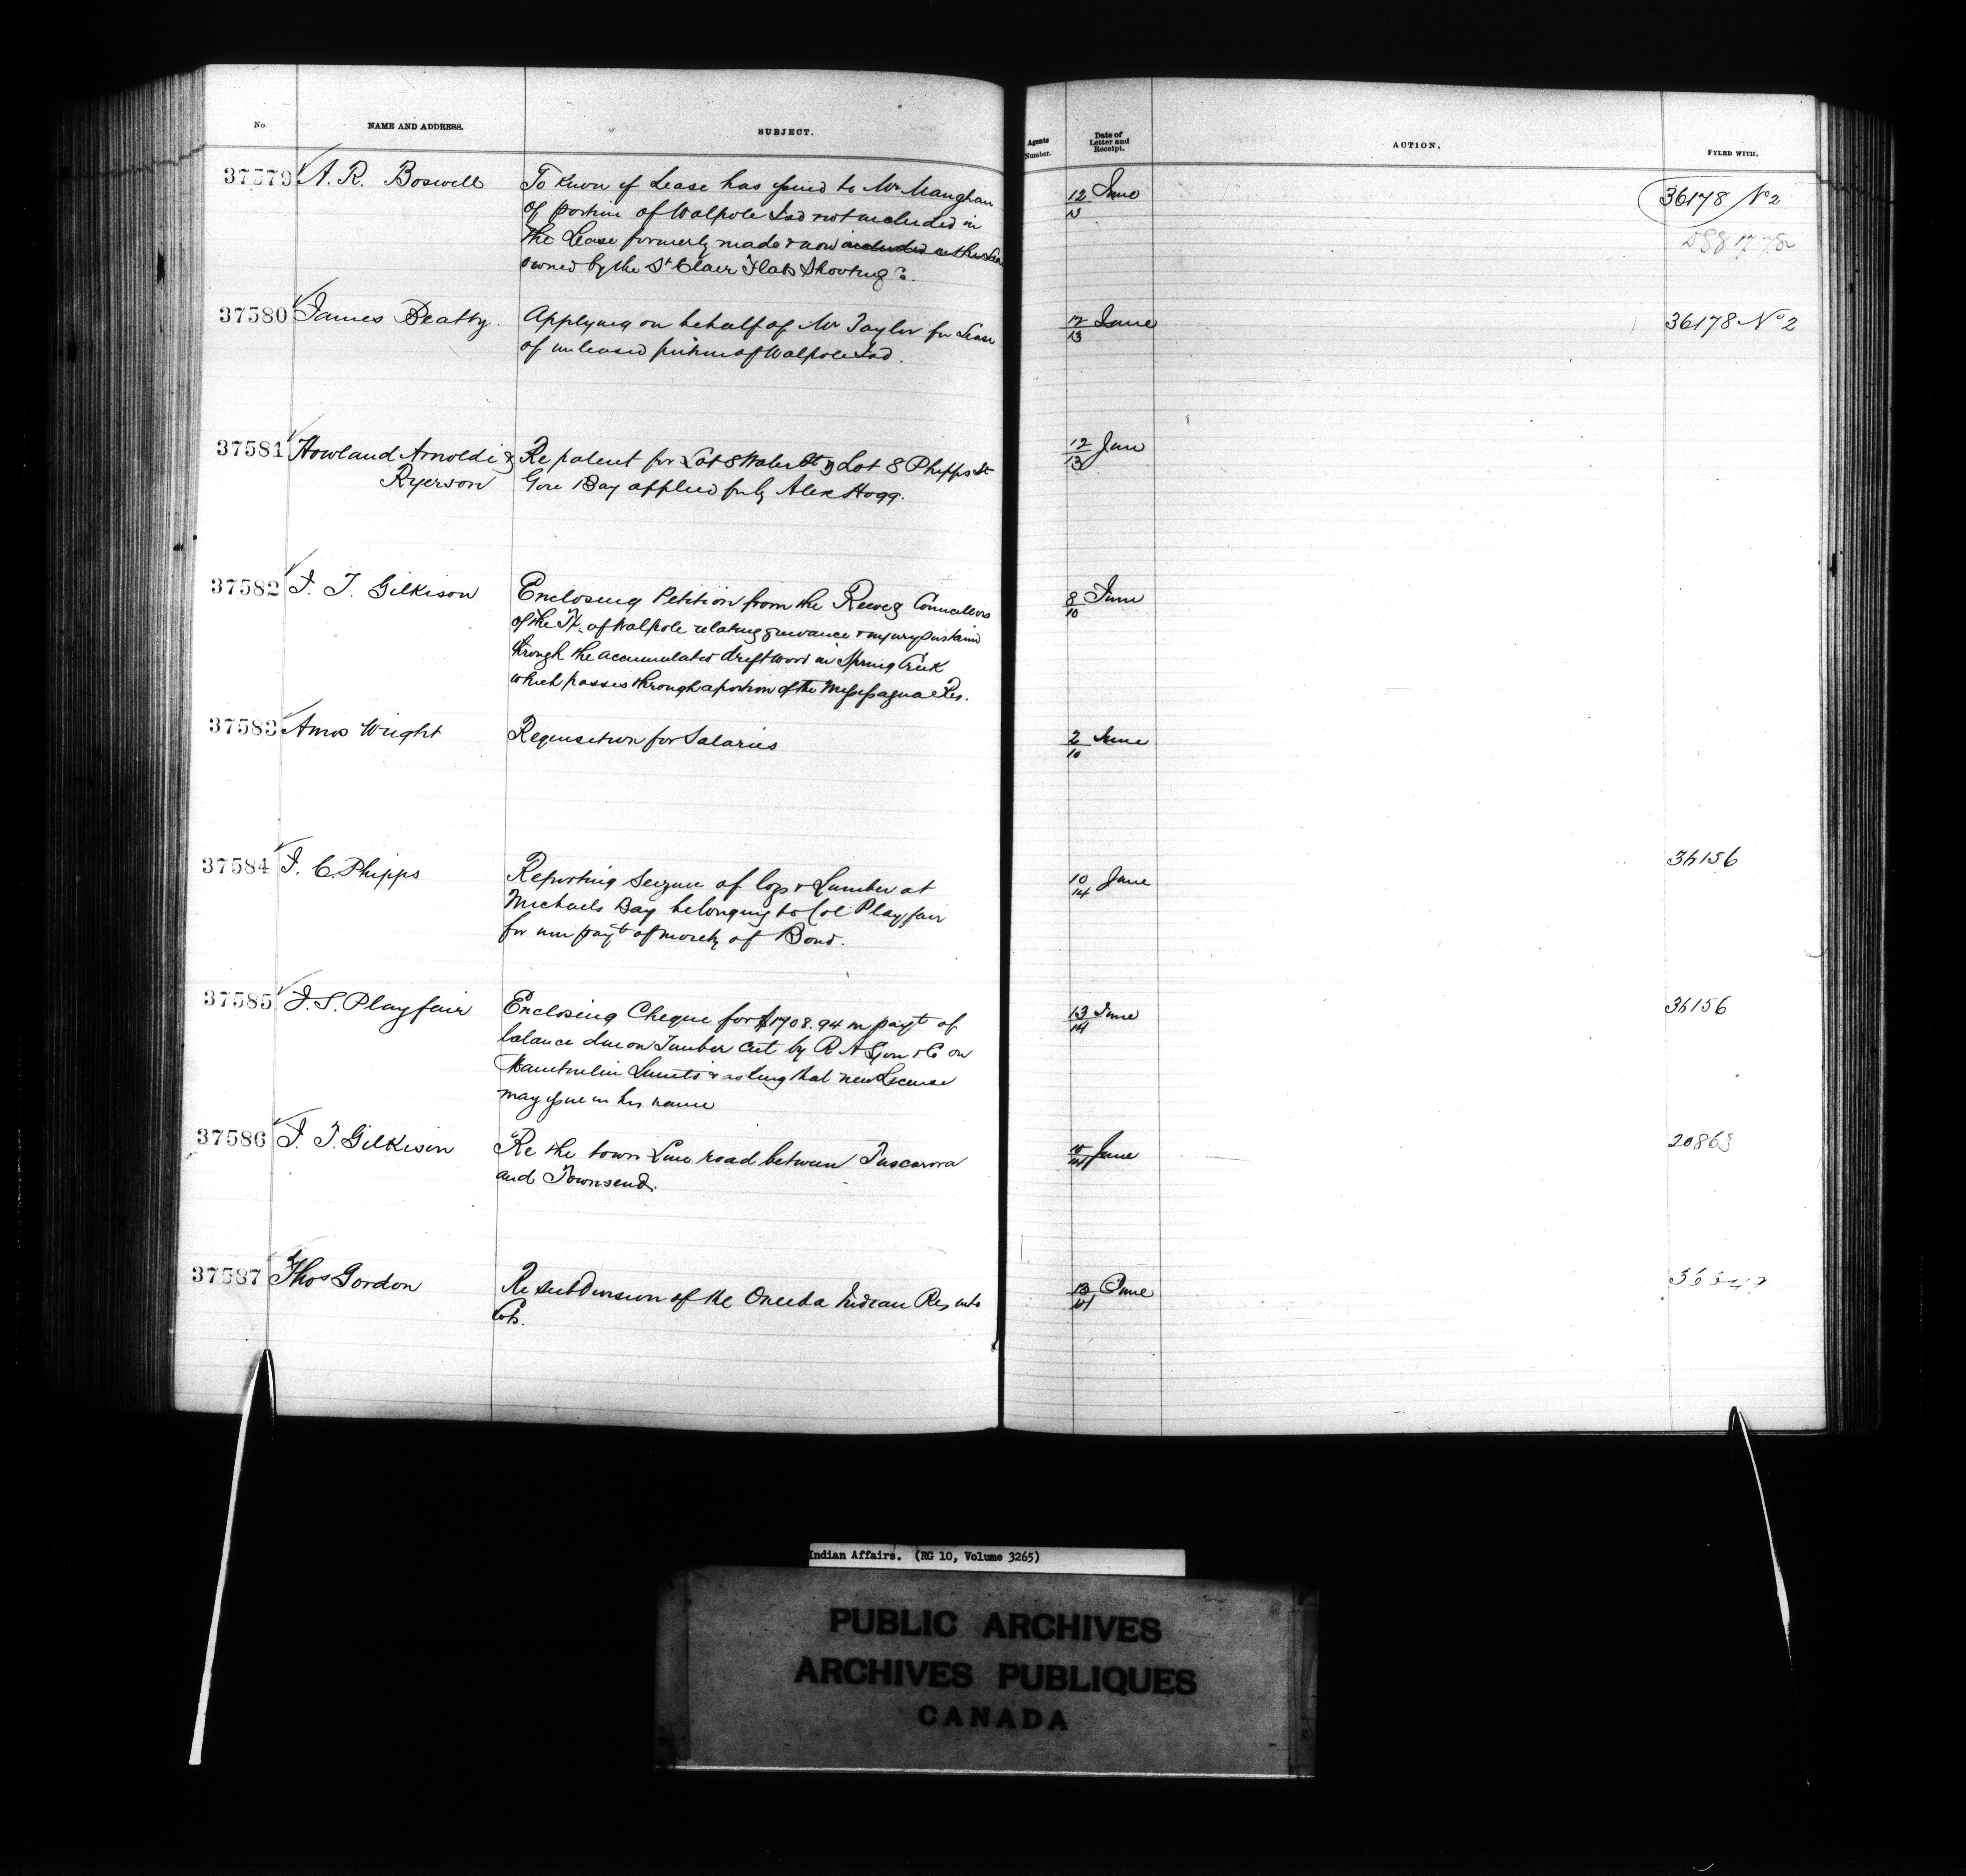 No. NAME AND ADDRESS. SUBJECT. Agents Number. Date of Letter and Receipt. ACTION. FYLED WITH.
37579 A. R. Boswell To know if Lease has issued to Mr Maughan 12/13 June 36178 No 2
of portion of Walpole Isd not included in
the Lease formerly made & now included in the Lease
owned by the St Clair Flats Shooting Co.
37580 James Beatty. Applying on behalf of Mr Taylor for Lease 12/13 June 36178 No 2
of unleased portion of Walpole Isd.
37581 Howland Arnoldi & Re patent for Lot 8 Water St & Lot 8 Phipps St 12/13 June
Ryerson Gore Bay applied for by Alex Hogg.
37582 J. T. Gilkison Enclosing Petition from the Reeve & Councillors 8/10 June
of the Tp. of Walpole relating grievance & injury sustained
through the accumulated driftwood in Spring Creek
which passes through a portion of the Mississagua Res.
37583 Amos Wright Requisition for Salaries 2/10 June
37584 J. C. Phipps Reporting Seizure of logs & Lumber at 10/14 June 36156
Michaels Bay belonging to Col Playfair
for non payt of moiety of Bond.
37585 J. S. Playfair Enclosing Cheque for $1708.94 in payt of 13/14 June 36156
balance due on Timber cut by R A Lyon & Co on
Manitoulin Limits & asking that new License
may issue in his name
37586 J. T. Gilkison Re the town Line road between Tuscarora June 20863
and Townsend.
37587 Thos Gordon Re subdivision of the Oneida Indian Res into 13/14 June
Lots.
Indian Affairs. (RG 10, Volume 3265)
PUBLIC ARCHIVES
ARCHIVES PUBLIQUES
CANADA